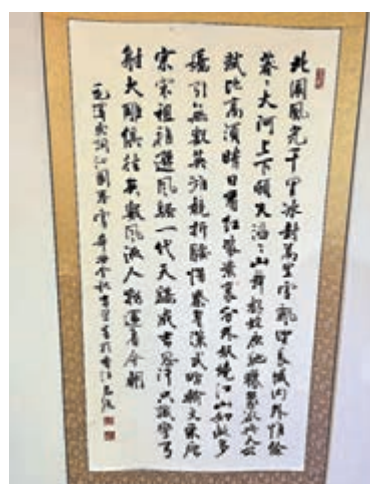 北國風光千里冰封萬里雪飄望長城内外惟餘
莽々大河上下頓失滔々山舞銀蛇原馳蠟象欲與天公
試比高須晴日看紅裝素裹分外妖嬈江山如此多
嬌引無數英雄競折腰惜秦皇漢武略輸文采唐
宗宋祖稍遜風騷一代天驕成吉思汗只識彎弓
射大雕俱往矣數風流人物還看今朝
毛澤東詞沁園春雪